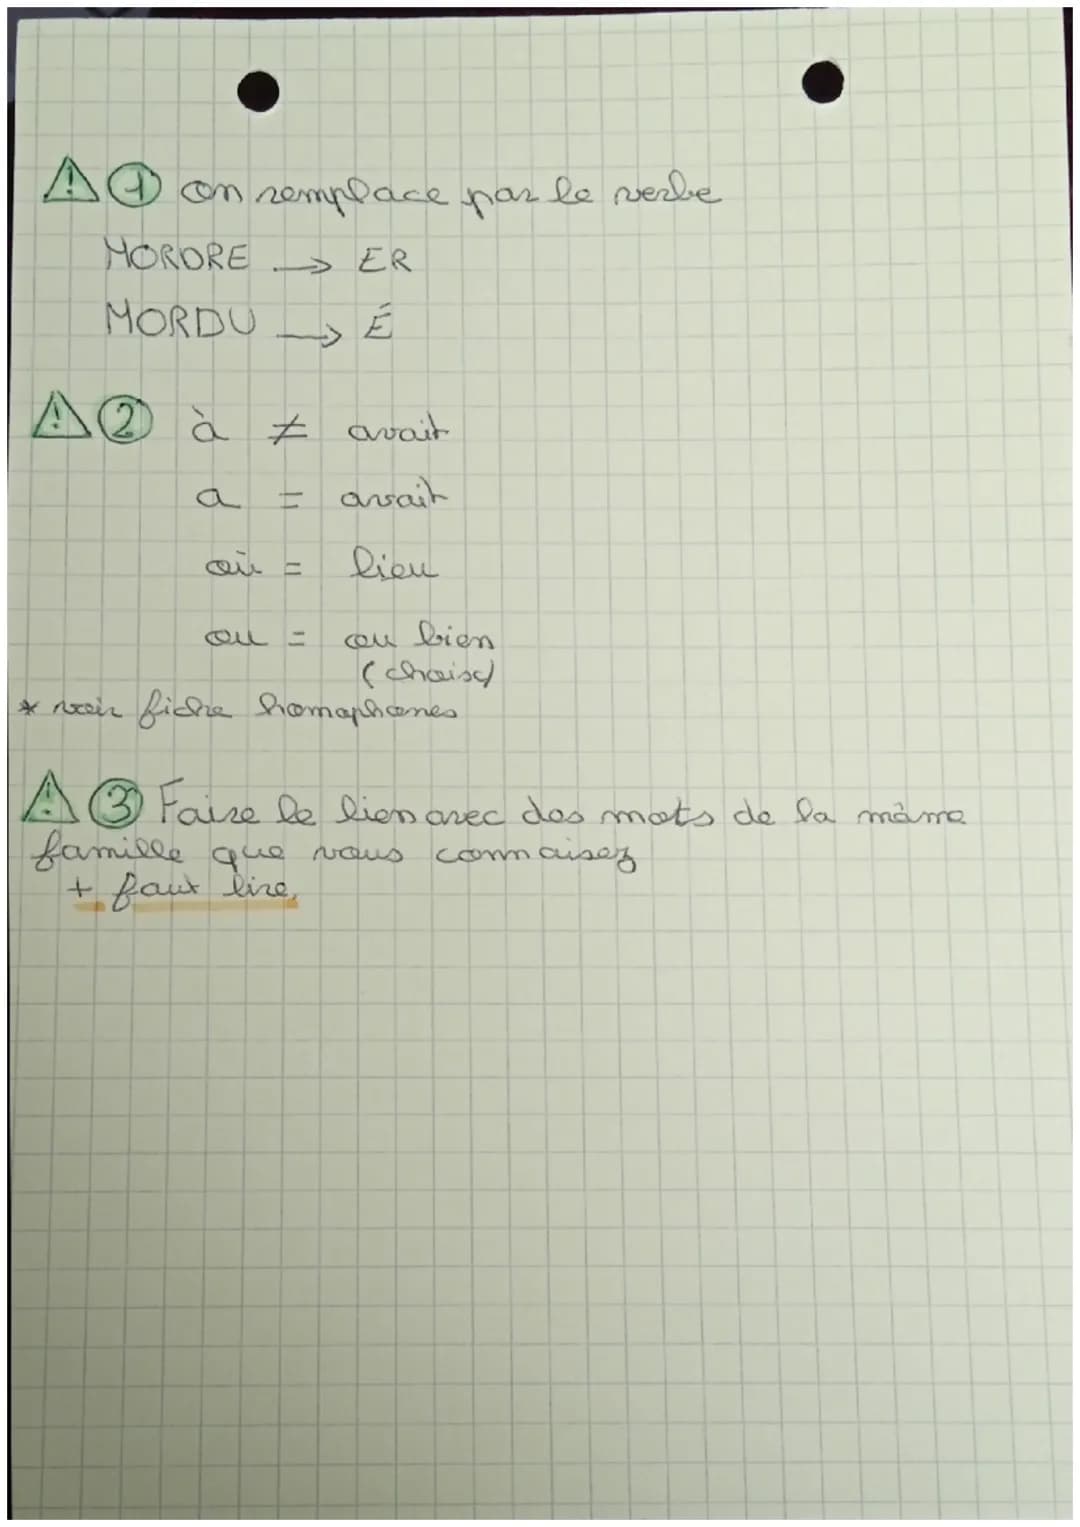 ⚠ ① on remplace par le verbe
MORDRE → ER
MORDU → É
⚠ ② à ≠ avait
a = avait
où = lieu
ou = ou bien
(choix)
* voir fiche homophones
⚠ ③ Faire le lien avec des mots de la même
famille que vous connaisez
+ faut lire.